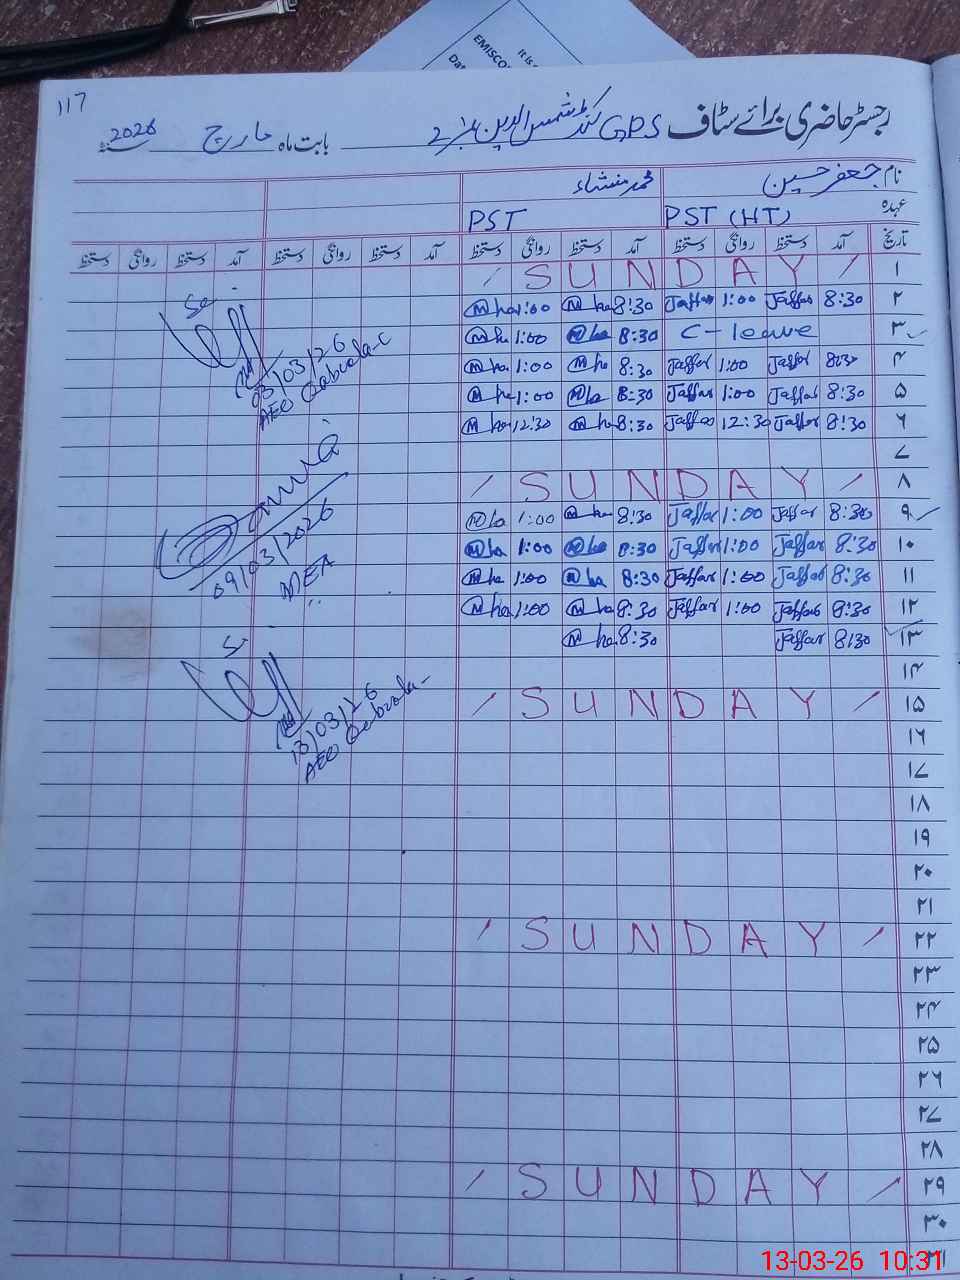 It is
EMISCO
Dat
117
رجسٹر حاضری برائے سٹاف GPS
بابت ماہ مارچ 2026
نام جعفر حسین محمد منشاء
عہدہ PST (HT) PST
تاریخ آمد دستخط روانگی دستخط آمد دستخط روانگی دستخط آمد دستخط روانگی دستخط آمد دستخط روانگی دستخط
۱ / SUNDAY /
۲ 8:30 Jaffar 1:00 Jaffar 8:30 1:00
۳ C-leave 8:30 1:00
۴ 8:30 Jaffar 1:00 Jaffar 8:30 1:00
۵ 8:30 Jaffar 1:00 Jaffar 8:30 1:00
۶ 8:30 Jaffar 12:30 Jaffar 8:30 12:30
۷
۸ / SUNDAY /
۹ 8:30 Jaffar 1:00 Jaffar 8:30 1:00
۱۰ 8:30 Jaffar 1:00 Jaffar 8:30 1:00
۱۱ 8:30 Jaffar 1:00 Jaffar 8:30 1:00
۱۲ 8:30 Jaffar 1:00 Jaffar 8:30 1:00
۱۳ 8:30 Jaffar 8:30
۱۴
۱۵ / SUNDAY /
۱۶
۱۷
۱۸
۱۹
۲۰
۲۱
۲۲ / SUNDAY /
۲۳
۲۴
۲۵
۲۶
۲۷
۲۸
۲۹ / SUNDAY /
۳۰
۳۱
03/03/26
AEO Qabula-C
09/03/2026
MEA
13/03/26
AEO Qabula-
13-03-26 10:31